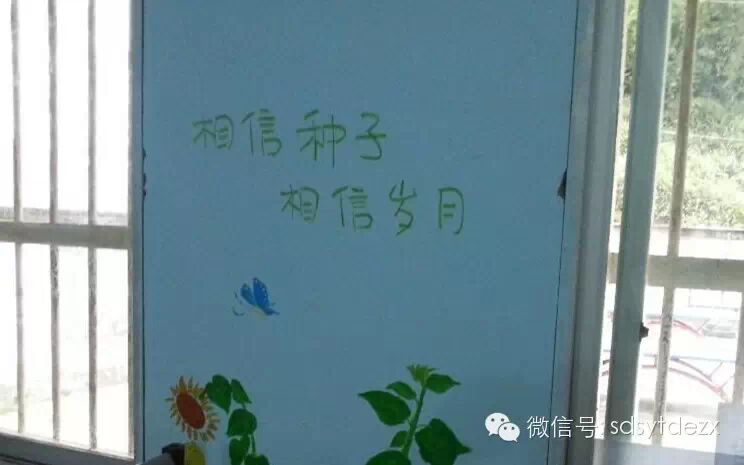 相信种子
相信岁月
微信号: sdsytdezx